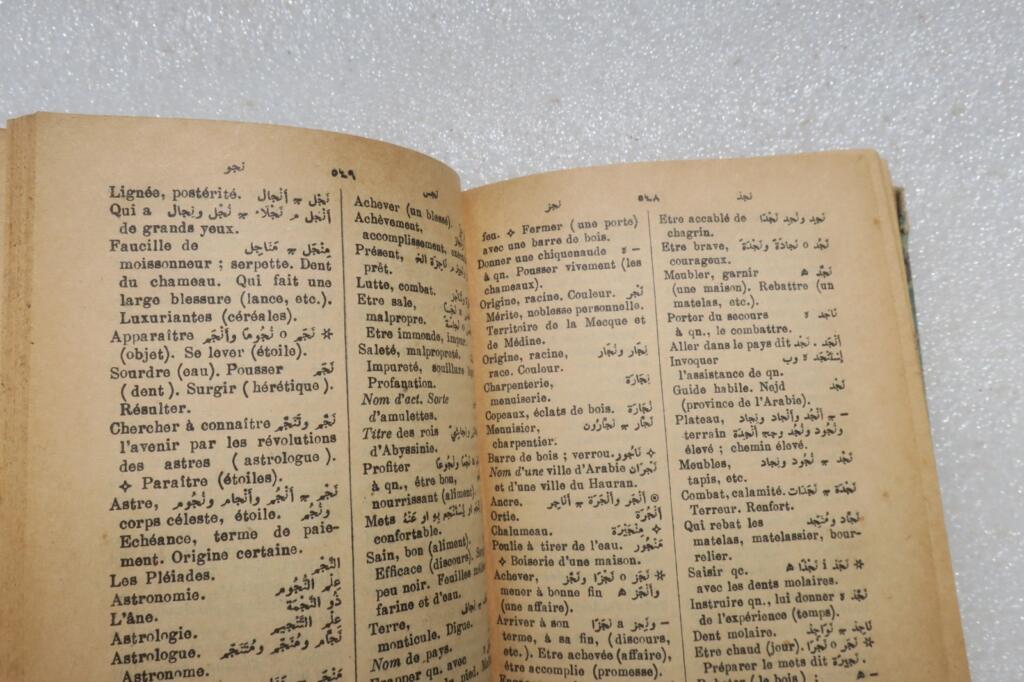 نجو
٥٤٩
نجس
Lignée, postérité. نَجْل ج أَنْجال
Qui a أَنْجَل م نَجْلَاء ج نُجْل ونِجال
de grands yeux.
Faucille de مِنْجَل ج مَنَاجِل
moissonneur ; serpette. Dent
du chameau. Qui fait une
large blessure (lance, etc.).
Luxuriantes (céréales).
Apparaître نَجَم o نُجُومًا وأَنْجَم *
(objet). Se lever (étoile).
Sourdre (eau). Pousser نَجَم
(dent). Surgir (hérétique).
Résulter.
Chercher à connaître نَجَّم وتَنَجَّم
l'avenir par les révolutions
des astres (astrologue).
✧ Paraître (étoiles).
Astre, نَجْم ج أَنْجُم وأَنْجَام ونُجُوم
corps céleste, étoile. ونُجُم
Echéance, terme de paie-
ment. Origine certaine.
Les Pléiades. النَّجْم
Astronomie. عِلْم النُّجُوم
L'âne. ذُو النَّجْمَة
Astrologie. عِلْم التَّنْجِيم
Astrologue. نَجَّام ومُنَجِّم ومُتَنَجِّم
Astronome.
Achever (un blessé).
Achèvement,
accomplissement,
Présent,
prêt.
Lutte, combat.
Etre sale,
malpropre.
Etre immonde,
Saleté, malpropreté,
Impureté, souillure
Profanation.
Nom d'act. Sorte
d'amulettes.
Titre des rois
d'Abyssinie.
Profiter
à qn., être bon,
nourrissant (aliment).
Mets
confortable.
Sain, bon (aliment).
Efficace (discours).
peu noir. Feuilles
farine et d'eau.
Terre,
monticule. Digue.
Nom de pays.
Frapper qn. avec
نجز
٥٤٨
نجد
feu. ✧ Fermer (une porte)
avec une barre de bois.
Donner une chiquenaude – ه
à qn. Pousser vivement (les
chameaux).
Origine, racine. Couleur. نَجْر
Mérite, noblesse personnelle.
Territoire de la Mecque et
de Médine.
Origine, racine, نِجَار ونُجَار
race. Couleur.
Charpenterie, نِجَارَة
menuiserie.
Copeaux, éclats de bois. نُجَارَة
Menuisier, نَجَّار ج نَجَّارُون
charpentier.
Barre de bois ; verrou. نَاجُور ✧
Nom d'une ville d'Arabie نَجْرَان
et d'une ville du Hauran.
Ancre. أَنْجَر وأَنْجَرَة ج أَنَاجِر
Ortie. أَنْجُرَة
Chalumeau. مِنْجَيْرَة ✧
Poulie à tirer de l'eau. مَنْجُور
✧ Boiserie d'une maison.
Achever, نَجَز o نَجْزًا ونَجَّز *
mener à bonne fin وأَنْجَز ه
(une affaire).
Arriver à son – ونَجِز a نَجَزًا
terme, à sa fin, (discours,
etc.). Etre achevée (affaire),
être accomplie (promesse).
Etre accablé de نَجِد ونُجِد نَجَدًا
chagrin.
Etre brave, نَجُد o نَجَادَة ونَجْدَة
courageux.
Meubler, garnir نَجَّد ه
(une maison). Rebattre (un
matelas, etc.).
Porter du secours ناجد ه
à qn., le combattre.
Aller dans le pays dit نَجْد. أَنْجَد
Invoquer إِسْتَنْجَد ه وب
l'assistance de qn.
Guide habile. Nejd نَجْد
(province de l'Arabie).
Plateau, – ج أَنْجُد وأَنْجاد ونِجاد
terrain ونُجُود ونُجُد وجج أَنْجِدَة
élevé ; chemin élevé.
Meubles, نَجْد ج نُجُود ونِجاد
tapis, etc.
Combat, calamité. نَجْدَة ج نَجَدَات
Terreur. Renfort.
Qui rebat les نَجَّاد ومُنَجِّد
matelas, matelassier, bour-
relier.
Saisir qc. نَجَذ i نَجْذًا ه *
avec les dents molaires.
Instruire qn., lui donner نَجَّذ ه
de l'expérience (temps).
Dent molaire. نَاجِذ ج نَوَاجِذ
Etre chaud (jour). نَجَر o نَجْرًا *
Préparer le mets dit نَجِيرَة.